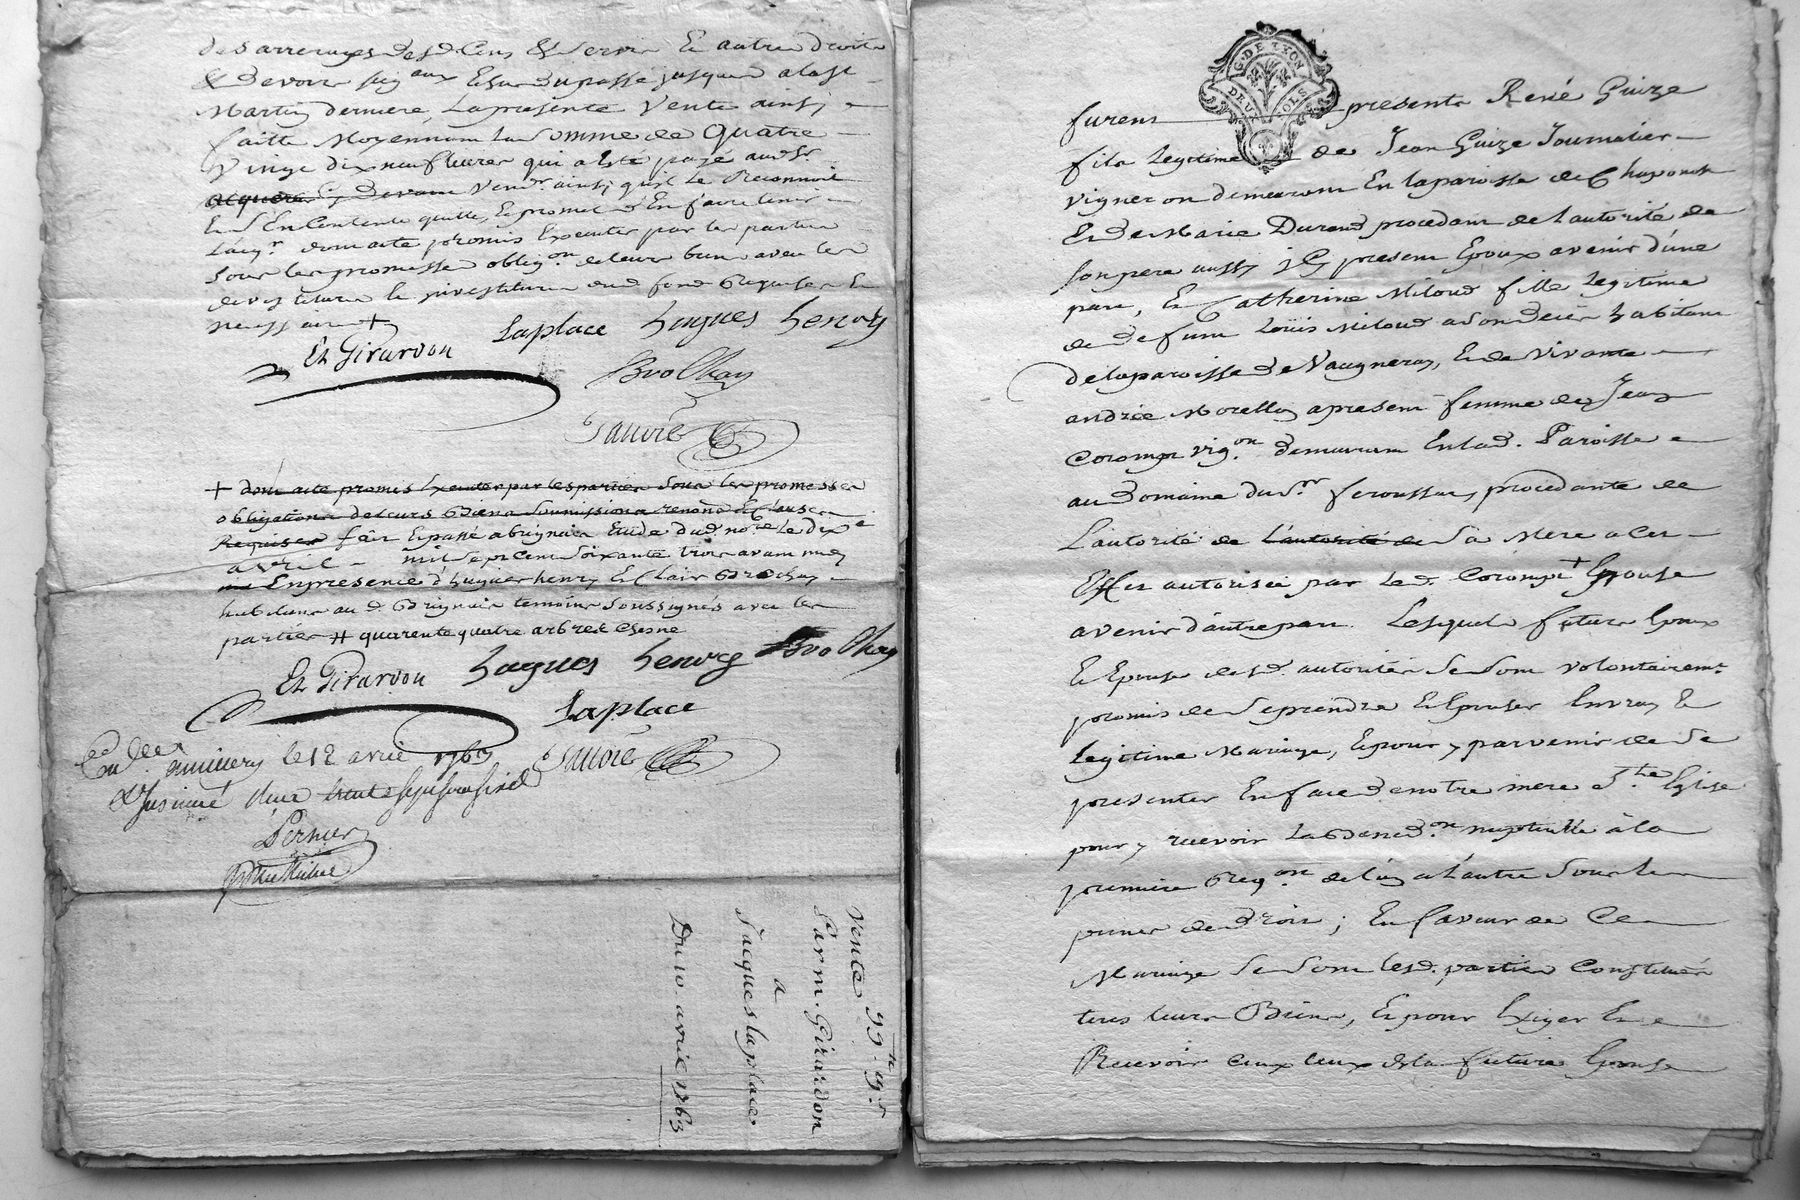 des arrerages desd. Cens & Servis Et autres droits
& devoirs seig.aux Escheus du passé jusques a la st
Martin derniere, La presente Vente ainsi
faitte Moyennant La Somme de Quatre
Vingt dix neuf livres qui a Eté payé aud. Sr
Vend.r ainsi qu'il Le Reconnoit
Et s'En Contente quitte, Et promet d'En faire tenir
L'acq.r dont acte promis Executer par les parties
Sous les promesses oblig.on de leurs biens avec les
devestiture & investiture dud fond Requises Et
necessaires +
Et Girardon Laplace hugues henry
Brochay
Sauvré
+ dont acte promis Executer par les parties Sous les promesses
obligations de leurs Biens Soumissions renon.on & Clauses
Requises fait Et passé a brignais Etude dud no.re Le dix e
avril mil Sept Cent Soixante trois avant midy
En presence d'huguer henry Et Clair Brochay
habitans aud Brignais temoins Soussignés avec les
parties # quarente quatre arbres Chesne
Et Girardon hugues henry Brochay
Laplace
Sauvré
le 12 avril 1763
Pernier
Vente 99 lt
Par m. Girardon
a
Jacques laplace
Du 10. avril 1763
G. DE LYON
DEUX SOLS
furent presents René Guize
fils Legitime de Jean Guize Journalier
vigneron demeurant En la paroisse de Chaponost
Et de Marie Durand procedant de L'autorité de
Son pere aussi icy present Epoux avenir d'une
part, Et Catherine Miloud fille Legitime
de defunt Loüis Miloud a Son deces habitant
de la paroisse de Vaugneray, Et de Vivante
andrée Morellon a present femme de Jean
Corompt vig.on demeurant En lad. Paroisse
au Domaine du S.r feroussat, procedante de
L'autorité de L'autorité de Sa Mere a Ces
Effets autorisée par Led. Corompt + Epouse
avenir d'autre part. Lesquels futurs Epoux
Et Epouse desd. autorités Se Sont volontairem.t
promis de Se prendre Et Epouser En vray Et
Legitime Mariage, Et pour y parvenir de Se
presenter En face de notre mere S.te Eglise
pour y recevoir La Bened.on nuptialle à la
premiere Req.on de l'un a L'autre Sous les
peines de droit ; En faveur de Ce
Mariage Se Sont Lesd. parties Constitués
tous leurs Biens, Et pour Exiger Et
Recevoir Ceux de la future Epouse